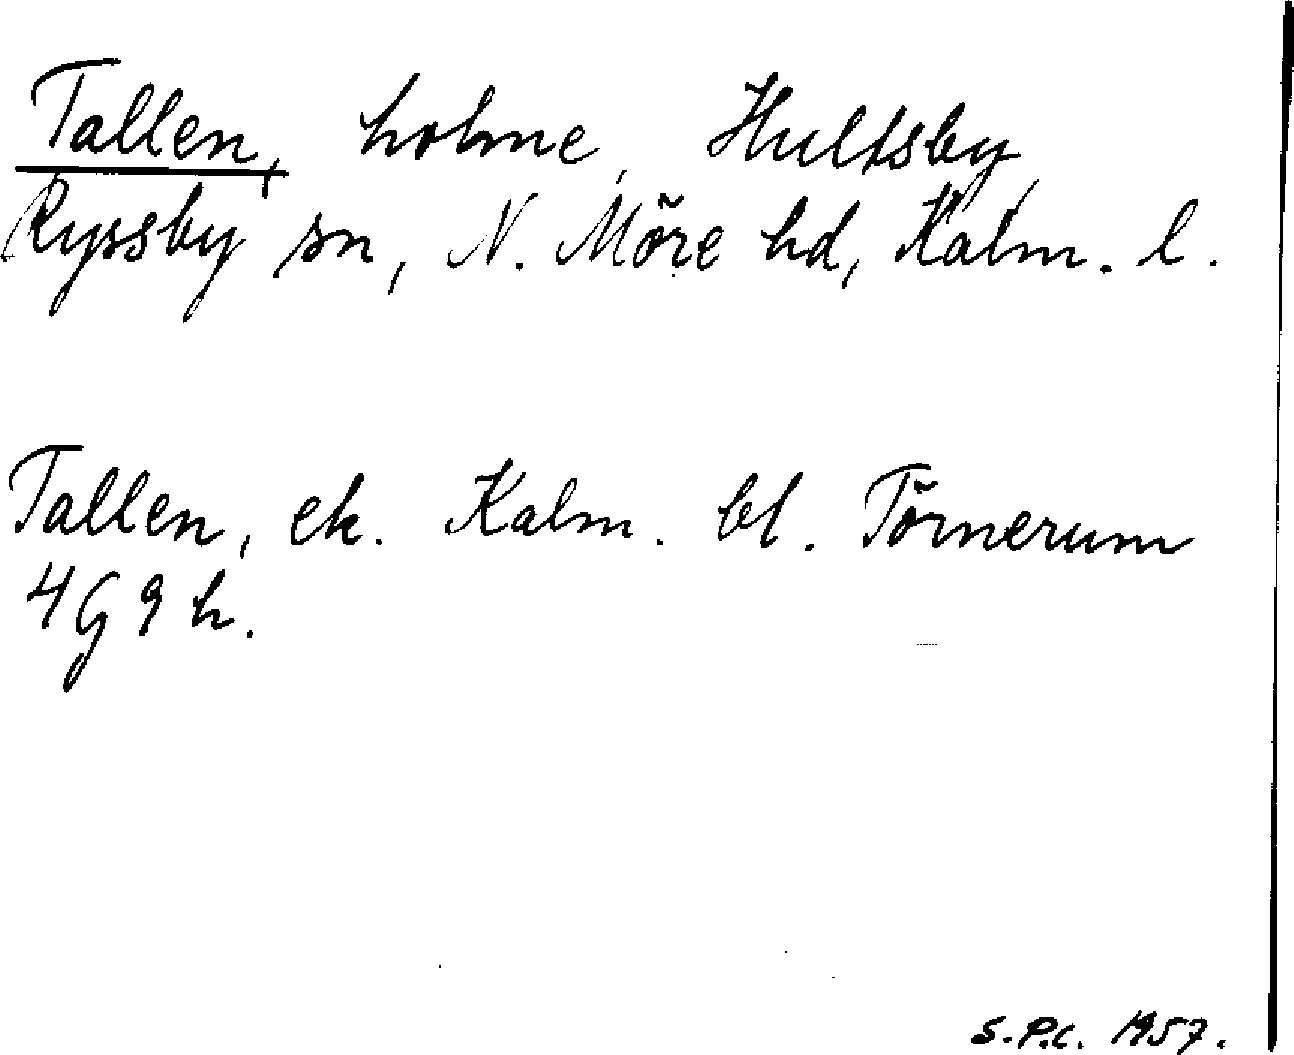 Tallen, holme, Hultsby,
Ryssby sn, N. Möre hd, Kalm. l.
Tallen, ek. Kalm. bl. Törnerum
4G 9 h.
S.P.C. 1957.